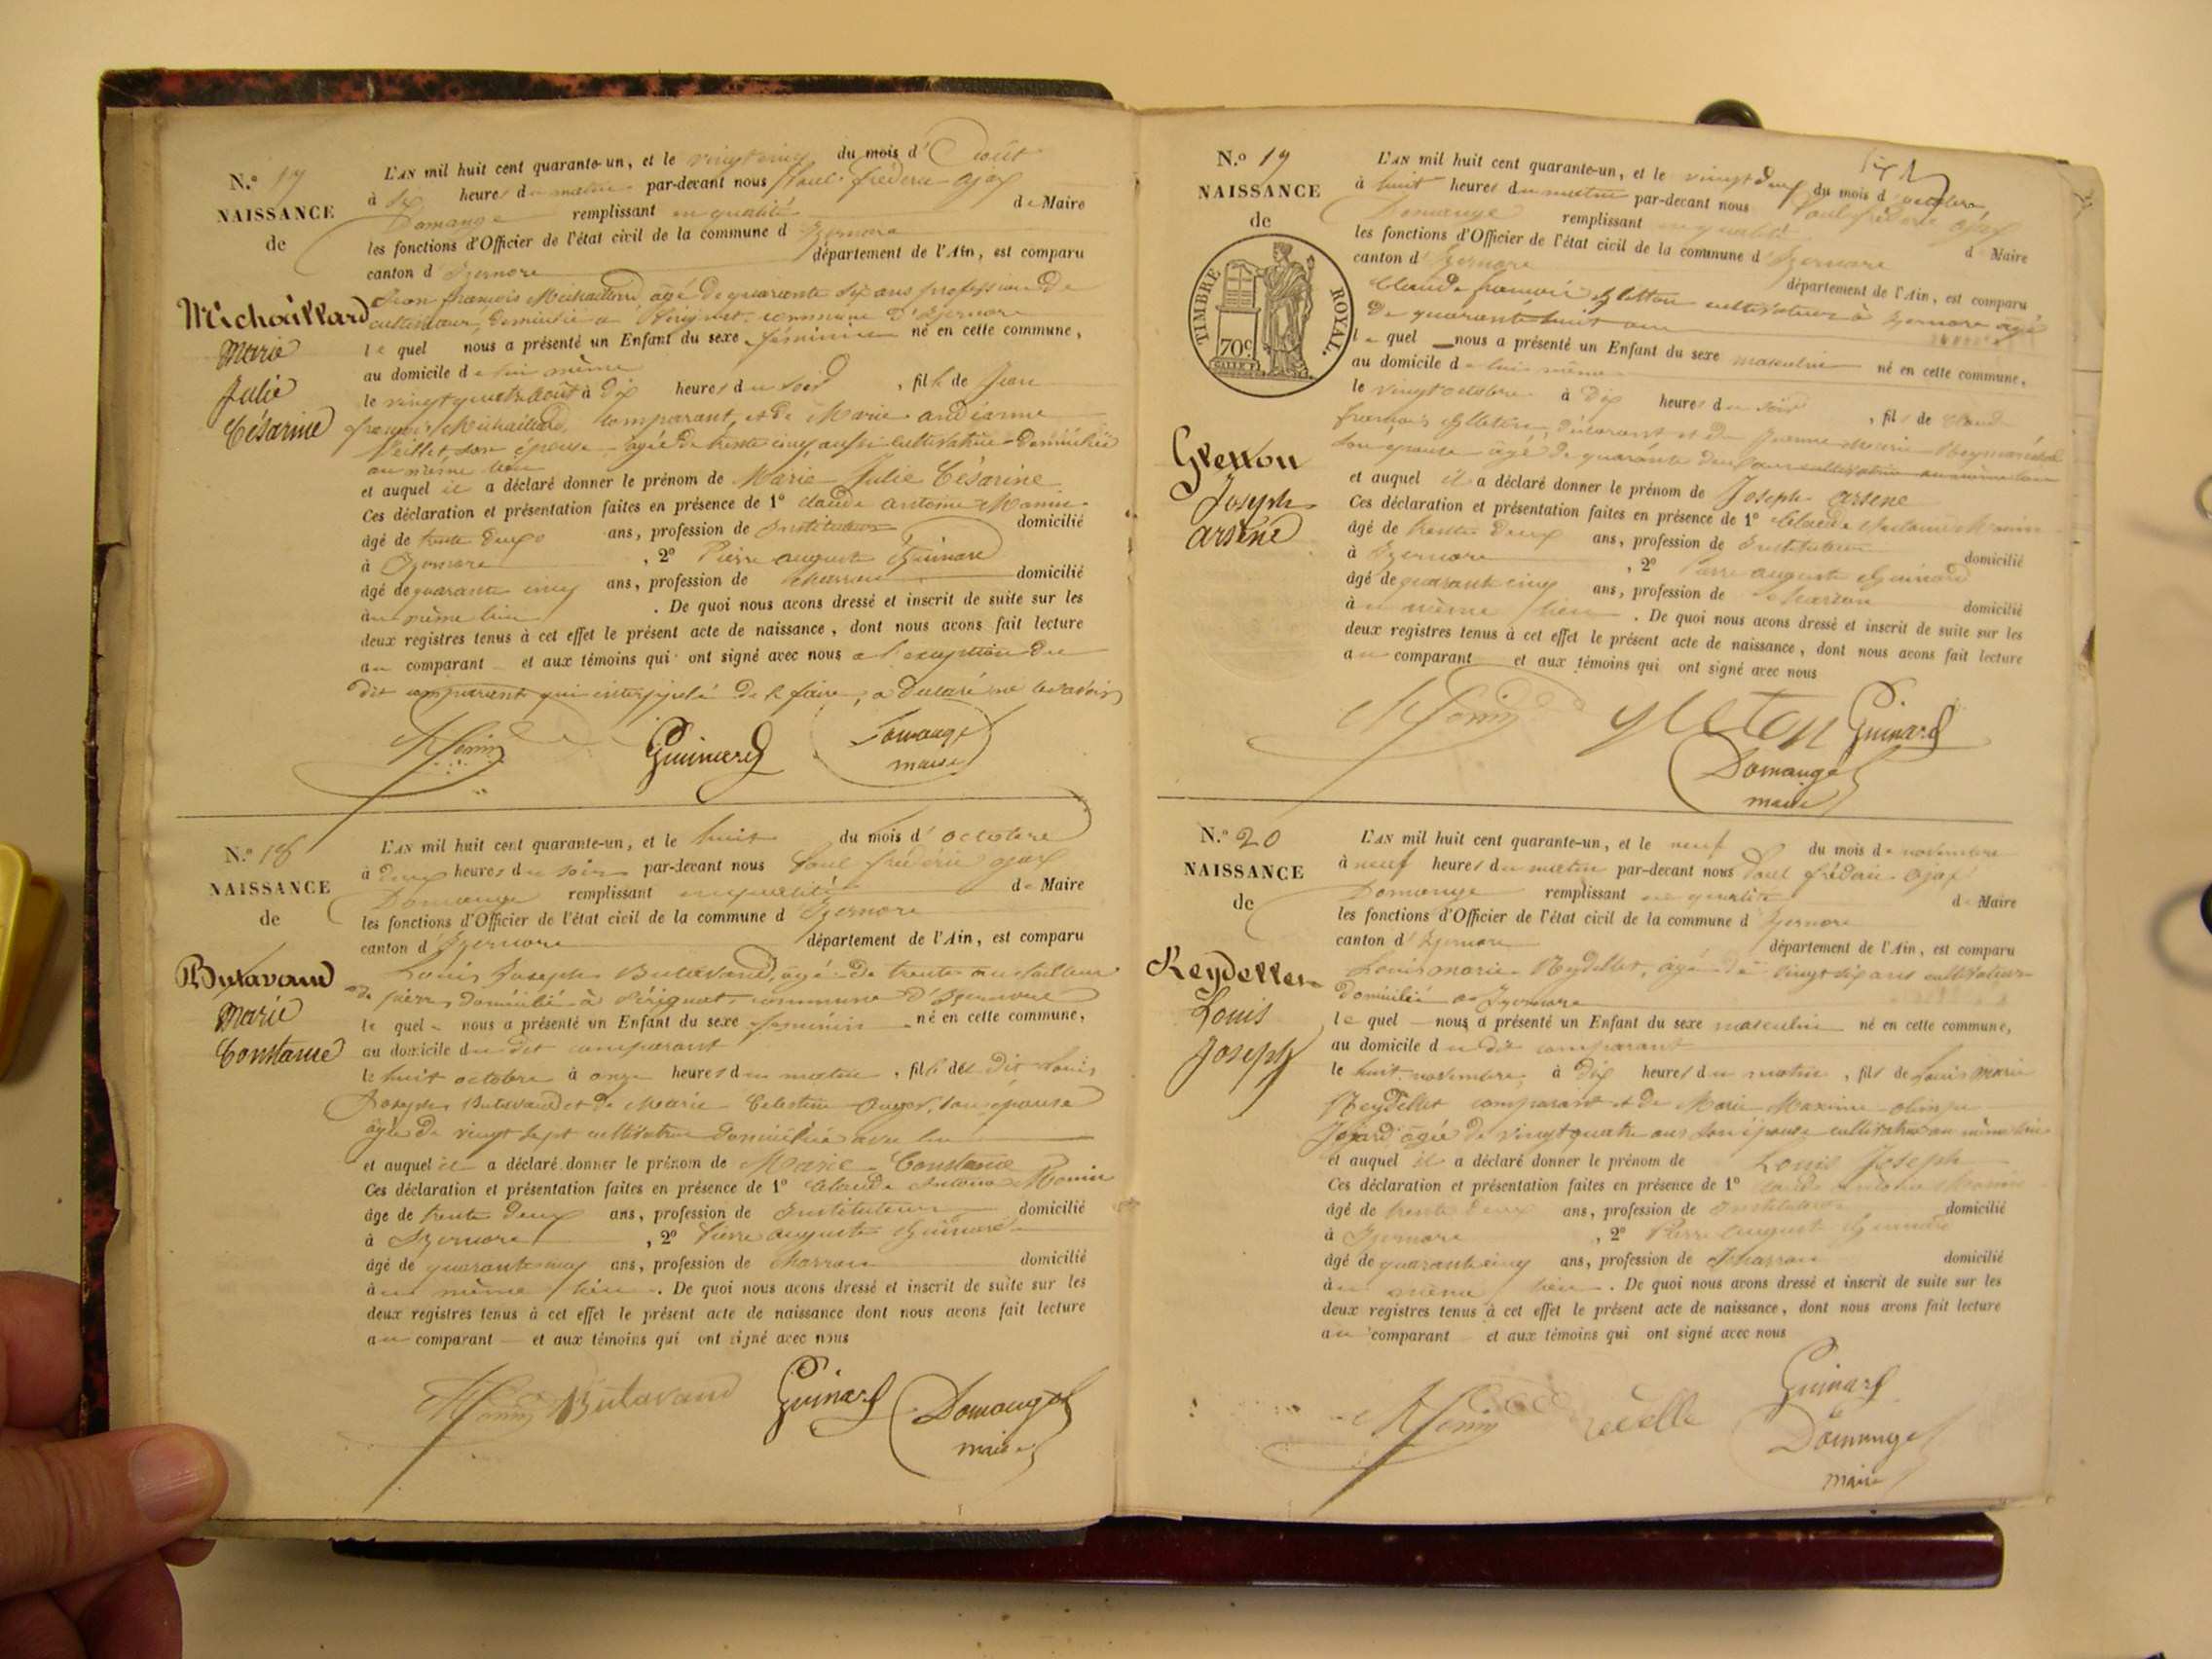 N.º 17
NAISSANCE
de
Michaillard
Marie
Julie
Césarine
L'AN mil huit cent quarante-un, et le vingt cinq du mois d'août
à six heures du matin par-devant nous Paul frédéric ajax
Domange remplissant en qualité de Maire
les fonctions d'Officier de l'état civil de la commune d'Izernore
canton d'Izernore département de l'Ain, est comparu
Jean françois Michaillard, âgé de quarante six ans profession de
cultivateur, domicilié à commune d'Izernore
lequel nous a présenté un Enfant du sexe féminin né en cette commune,
au domicile de lui même
le vingt quatre août à dix heures du soir, fille de Jean
françois Michaillard, comparant, et de Marie andéanne
Veillet son épouse âgée de trente cinq, aussi cultivatrice domiciliée
au même lieu
et auquel il a déclaré donner le prénom de Marie Julie Césarine
Ces déclaration et présentation faites en présence de 1º Claude antoine Monin
âgé de trente deux ans, profession de Instituteur domicilié
à Izernore, 2º Pierre auguste Guinard
âgé de quarante cinq ans, profession de charron domicilié
au même lieu. De quoi nous avons dressé et inscrit de suite sur les
deux registres tenus à cet effet le présent acte de naissance, dont nous avons fait lecture
au comparant et aux témoins qui ont signé avec nous à l'exception du
dit comparant qui interpellé de le faire, a déclaré ne le savoir
Monin Guinard Domange
maire
N.º 18
NAISSANCE
de
Butavand
Marie
Constance
L'AN mil huit cent quarante-un, et le huit du mois d'octobre
à deux heures du soir par-devant nous Paul frédéric ajax
Domange remplissant en qualité de Maire
les fonctions d'Officier de l'état civil de la commune d'Izernore
canton d'Izernore département de l'Ain, est comparu
Louis Joseph Butavand, âgé de trente tailleur
de pierres domicilié à Pérignat, commune d'Izernore
lequel nous a présenté un Enfant du sexe féminin né en cette commune,
au domicile du dit comparant
le huit octobre à onze heures du matin, fille du dit Louis
Joseph Butavand et de Marie Celestine son épouse
âgée de vingt sept cultivatrice domiciliée avec lui
et auquel il a déclaré donner le prénom de Marie Constance
Ces déclaration et présentation faites en présence de 1º Claude Antoine Monin
âgé de trente deux ans, profession de Instituteur domicilié
à Izernore, 2º Pierre auguste Guinard
âgé de quarante cinq ans, profession de charron domicilié
au même lieu. De quoi nous avons dressé et inscrit de suite sur les
deux registres tenus à cet effet le présent acte de naissance dont nous avons fait lecture
au comparant et aux témoins qui ont signé avec nous
Monin Butavand Guinard Domange
maire
N.º 19
NAISSANCE
de
TIMBRE ROYAL.
70c
Gletton
Joseph
arsène
L'AN mil huit cent quarante-un, et le vingt deux du mois d'octobre
à huit heures du matin par-devant nous Paul frédéric ajax
Domange remplissant en qualité de Maire
les fonctions d'Officier de l'état civil de la commune d'Izernore
canton d'Izernore département de l'Ain, est comparu
Claude françois Gletton cultivateur à Izernore âgé
de quarante huit ans
lequel nous a présenté un Enfant du sexe masculin né en cette commune,
au domicile de lui même
le vingt octobre à dix heures du soir, fils de Claude
françois Gletton, déclarant et de Jeanne Marie
son épouse âgé de quarante deux ans cultivatrice au même lieu
et auquel il a déclaré donner le prénom de Joseph arsène
Ces déclaration et présentation faites en présence de 1º Claude Antoine Monin
âgé de trente deux ans, profession de Instituteur domicilié
à Izernore, 2º Pierre auguste Guinard
âgé de quarante cinq ans, profession de charron domicilié
au même lieu. De quoi nous avons dressé et inscrit de suite sur les
deux registres tenus à cet effet le présent acte de naissance, dont nous avons fait lecture
au comparant et aux témoins qui ont signé avec nous
Monin Gleton Guinard
Domange
maire
N.º 20
NAISSANCE
de
Reydellet
Louis
Joseph
L'AN mil huit cent quarante-un, et le neuf du mois de novembre
à neuf heures du matin par-devant nous Paul frédéric ajax
Domange remplissant en qualité de Maire
les fonctions d'Officier de l'état civil de la commune d'Izernore
canton d'Izernore département de l'Ain, est comparu
Louis marie Reydellet, âgé de vingt six ans cultivateur
domicilié à Izernore
lequel nous a présenté un Enfant du sexe masculin né en cette commune,
au domicile du dit comparant
le huit novembre à dix heures du matin, fils de Louis marie
Reydellet comparant et de Marie Maxime olimpe
âgée de vingt quatre ans son épouse cultivatrice au même lieu
et auquel il a déclaré donner le prénom de Louis Joseph
Ces déclaration et présentation faites en présence de 1º Claude antoine Monin
âgé de trente deux ans, profession de Instituteur domicilié
à Izernore, 2º Pierre auguste Guinard
âgé de quarante cinq ans, profession de charron domicilié
au même lieu. De quoi nous avons dressé et inscrit de suite sur les
deux registres tenus à cet effet le présent acte de naissance, dont nous avons fait lecture
au comparant et aux témoins qui ont signé avec nous
Guinard
Monin
Domange
maire